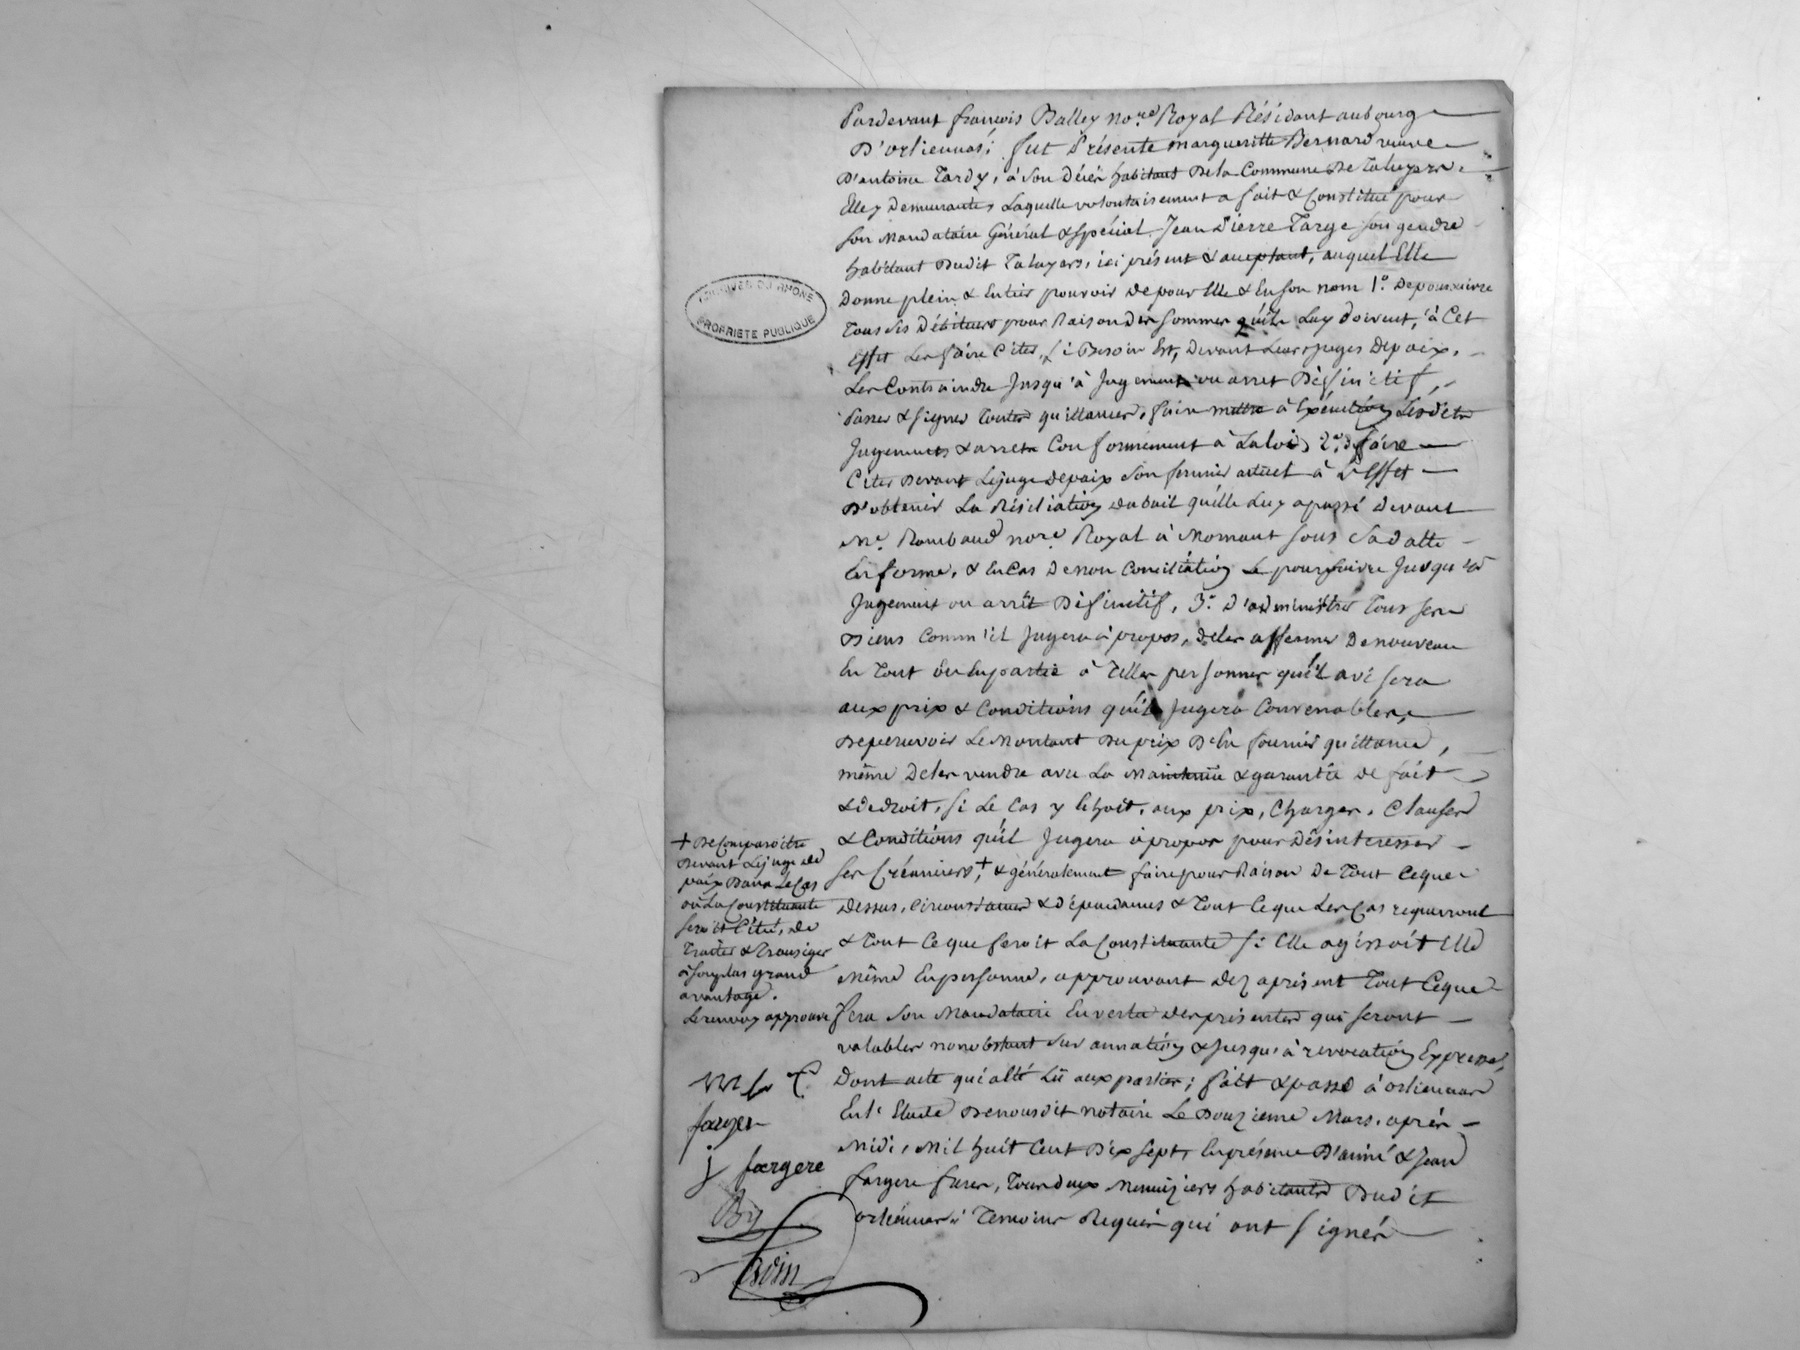 Pardevant françois Balley no.re Royal Résidant au bourg
D'orlienas; fut Présente margueritte Bernard veuve
D'antoine Tardy, à son décès habitant De la Commune De Taluyers,
Elle y Demeurante, Laquelle volontairement a fait & Constitué pour
son Mandataire Général & spécial Jean Pierre Targe son gendre
habitant Dudit Taluyers, ici présent & acceptant, auquel Elle
Donne plein & Entier pouvoir de pour Elle & En son nom 1.° De poursuivre
Tous ses Débiteurs pour Raison des sommes qu'ils Luy doivent, à Cet
Effet Les faire Citer, si Besoin Est, Devant Leurs juges De paix,
Les Contraindre Jusqu'à Jugement ou arret Définitif,
Passer & signer Toutes quittances, faire mettre à Exécution Lesdits
Jugements & arrets Conformément à La loi, 2.° de faire
Citer Devant Le juge de paix Son fermier actuel à L'Effet
D'obtenir La Résiliation du bail qu'elle Luy a passé devant
Me. Rambaud no.re Royal à Mornant sous Sa datte
En forme, & En Cas De non Conciliation Le poursuivre Jusqu'à
Jugement ou arrêt Définitif, 3.° D'administrer Tous ses
Biens Comm'il Jugera à propos, de les affermer De nouveau
En Tout ou En partie à Telles personnes qu'il avisera
aux prix & Conditions qu'il Jugera Convenables,
De percevoir Le Montant Du prix D'En fournir quittance,
même De les vendre avec La Maintenue & garantie de fait
& de droit, si Le Cas y Echoit, aux prix, Charges, Clauses
& Conditions qu'il Jugera à propos pour Désintéresser
ses Créanciers,+ & généralement faire pour Raison De Tout Ceque
Dessus, Circonstances & Dépendances & Tout Ceque Les Cas requerront
& Tout Ceque feroit La Constituante si Elle agissoit Elle
Même En personne, approuvant dez aprésent Tout Ceque
fera Son Mandataire En vertu des présentes qui seront
valables nonobstant Surannation & Jusqu'à révocation Expresse,
Dont acte qui a été Lû aux parties; fait & passé à orlienas
En l'Etude De nousdit notaire Le Douzieme Mars, après
Midi, Mil huit Cent Dix sept, En présence D'aimé & Jean
fargere freres, Tous deux Menuiziers habitants Dudit
orlienas Temoins Requis qui ont signés
+ De Comparoitre
Devant Le juge de
paix Dans Le Cas
où La Constituante
seroit Citée, de
Traiter & Transiger
à son plus grand
avantage.
Le renvoy approuvé
j fargere
ARCHIVES DU RHONE
PROPRIETE PUBLIQUE